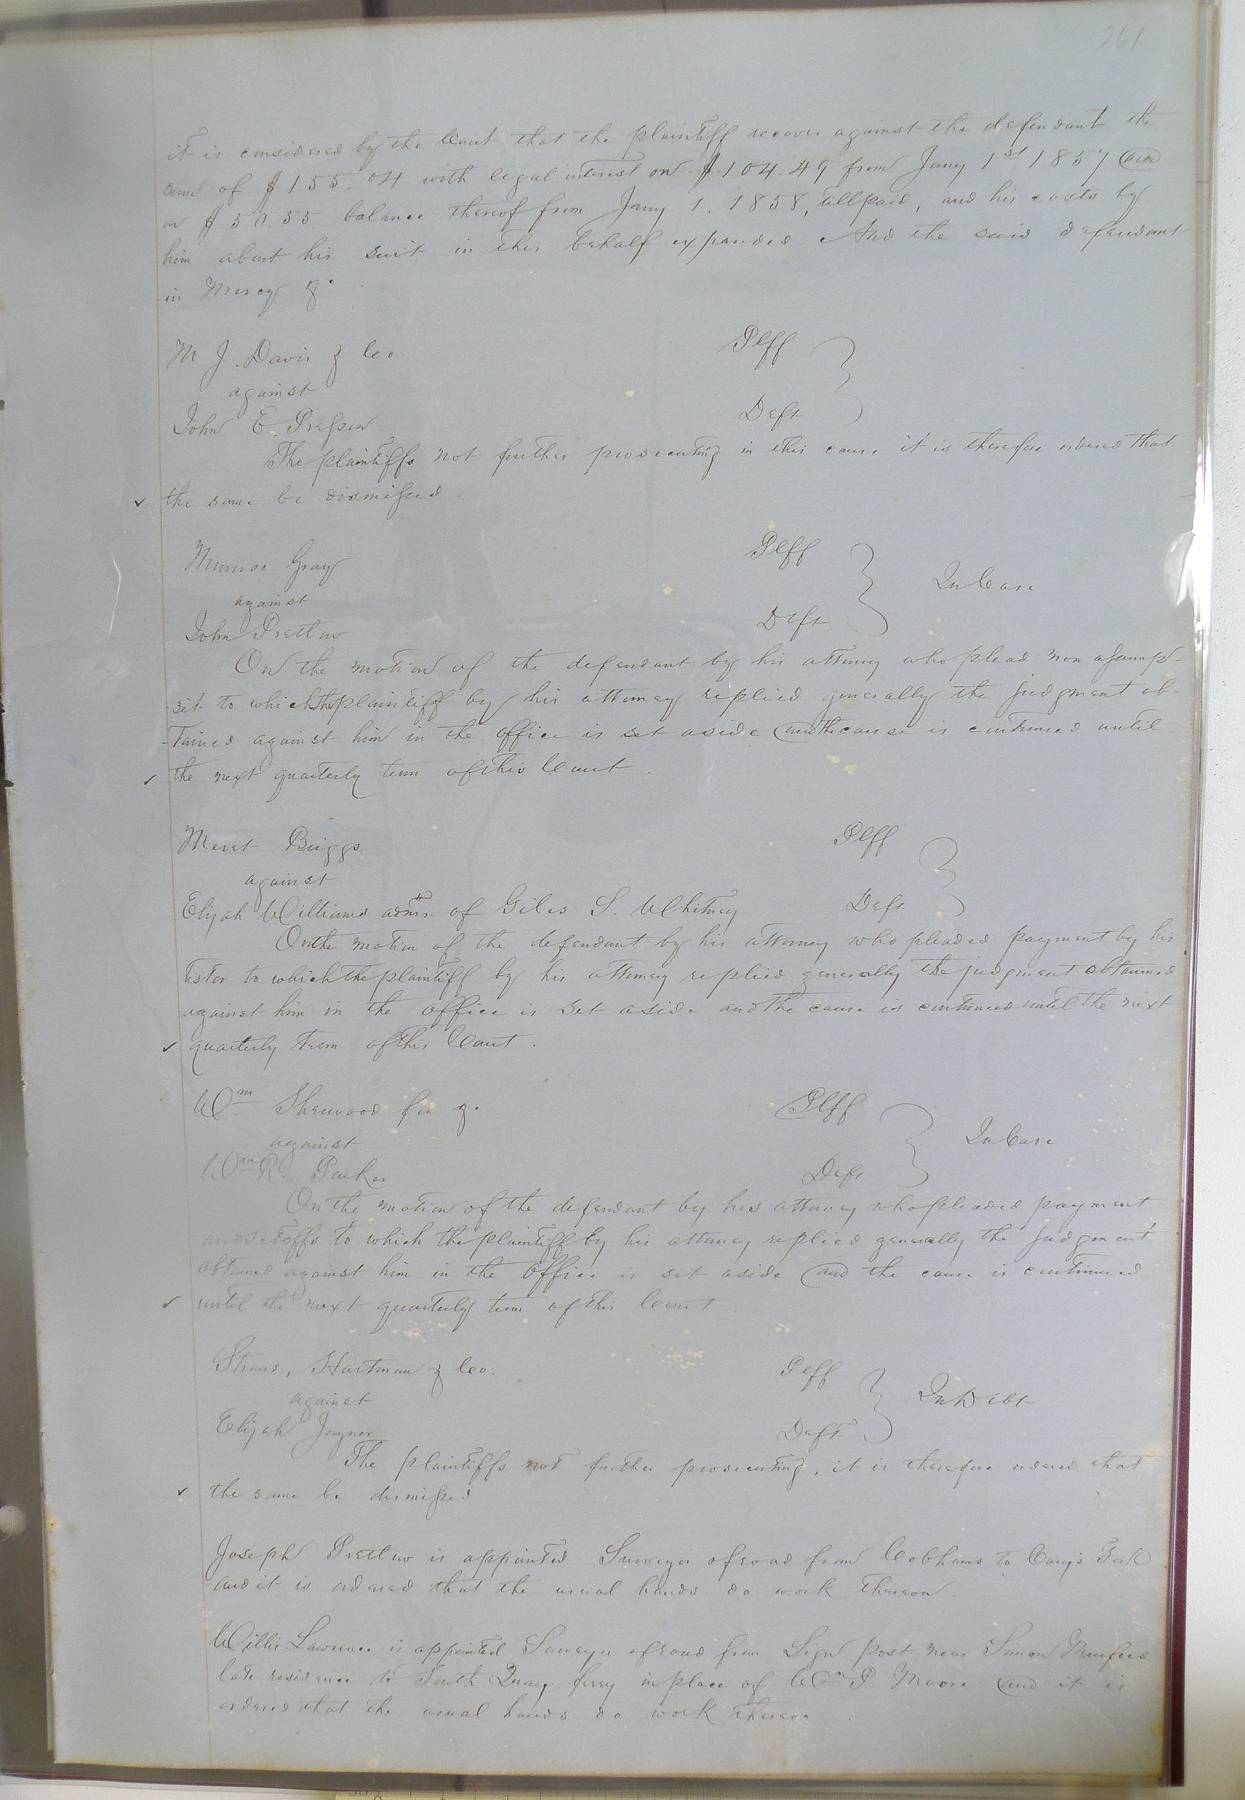 261
it is considered by the Court that the plaintiff recover against the defendant the
sum of $155.04 with legal interest on $104.49 from Jany 1st 1857 and
on $50.55 balance thereof from Jany 1. 1858, till paid, and his costs by
him about his suit in this behalf expended And the said defendant
in Mercy &c
M J. Davis & Co Plff
against
John E. Deft
The plaintiffs not further prosecuting in this cause it is therefore ordered that
the same be dismissed.
Munroe Gray Plff
against In Case
John Pretlow Deft
On the motion of the defendant by his attorney who plead non assump-
-sit to which the plaintiff by his attorney replied generally the judgment ob-
-tained against him in the office is set aside and the cause is continued until
the next quarterly term of this Court.
Merit Briggs Plff
against
Elijah Williams admr. of Giles S. Whitney Deft
On the motion of the defendant by his attorney who pleaded payment by his
to which the plaintiff by his attorney replied generally the judgment obtained
against him in the office is set aside and the cause is continued until the next
quarterly term of this Court.
Wm Sherwood for &c Plff
against In Case
Wm R. Parker Deft
On the motion of the defendant by his attorney who pleaded payment
and setoffs to which the plaintiff by his attorney replied generally the judgment
obtained against him in the office is set aside and the cause is continued
until the next quarterly term of this Court
Straus, Hartman & Co. Plff
against In Debt
Elijah Joyner Deft
The plaintiffs not further prosecuting, it is therefore ordered that
the same be dismissed
Joseph Pretlow is appointed Surveyor of road from Cobhams to
and it is ordered that the usual hands do work thereon.
Willis Lawrence is appointed Surveyor of road from Sign post near Simon
late residence to South Quay ferry in place of Wm P Moore and it is
ordered that the usual hands do work thereon.